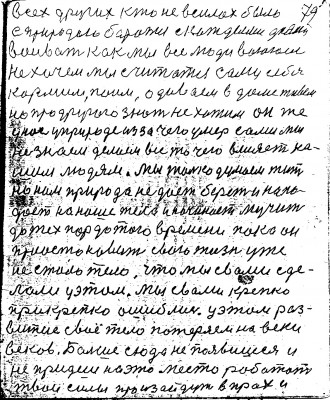 всех других кто не в силах было 79
с природого боротся с каждыми
воиват как мы все люди воюем
не хочем мы считатся сами себя
кормим, поим, одиваем в доме живем
но про другого знат не хотим он же
умер у природе из за чого умер сами мы
не знаем делаем все то чего влияет на
самим людям. Мы только думаем жит
но нам природа не дает берет и напа-
дает на наше тело и начинает мучит
до тех пор до того времени пока он
приостоновит свого жизн уже
не стало тело, что мы с вами сде-
лали у этом. Мы с вами крепко
прикрепко ошиблис у этом раз-
витие своё тело потеряем на веки
веков. Болше сюда не появищеся и
не придеш на это место работат
твои силы произайдут в прах и